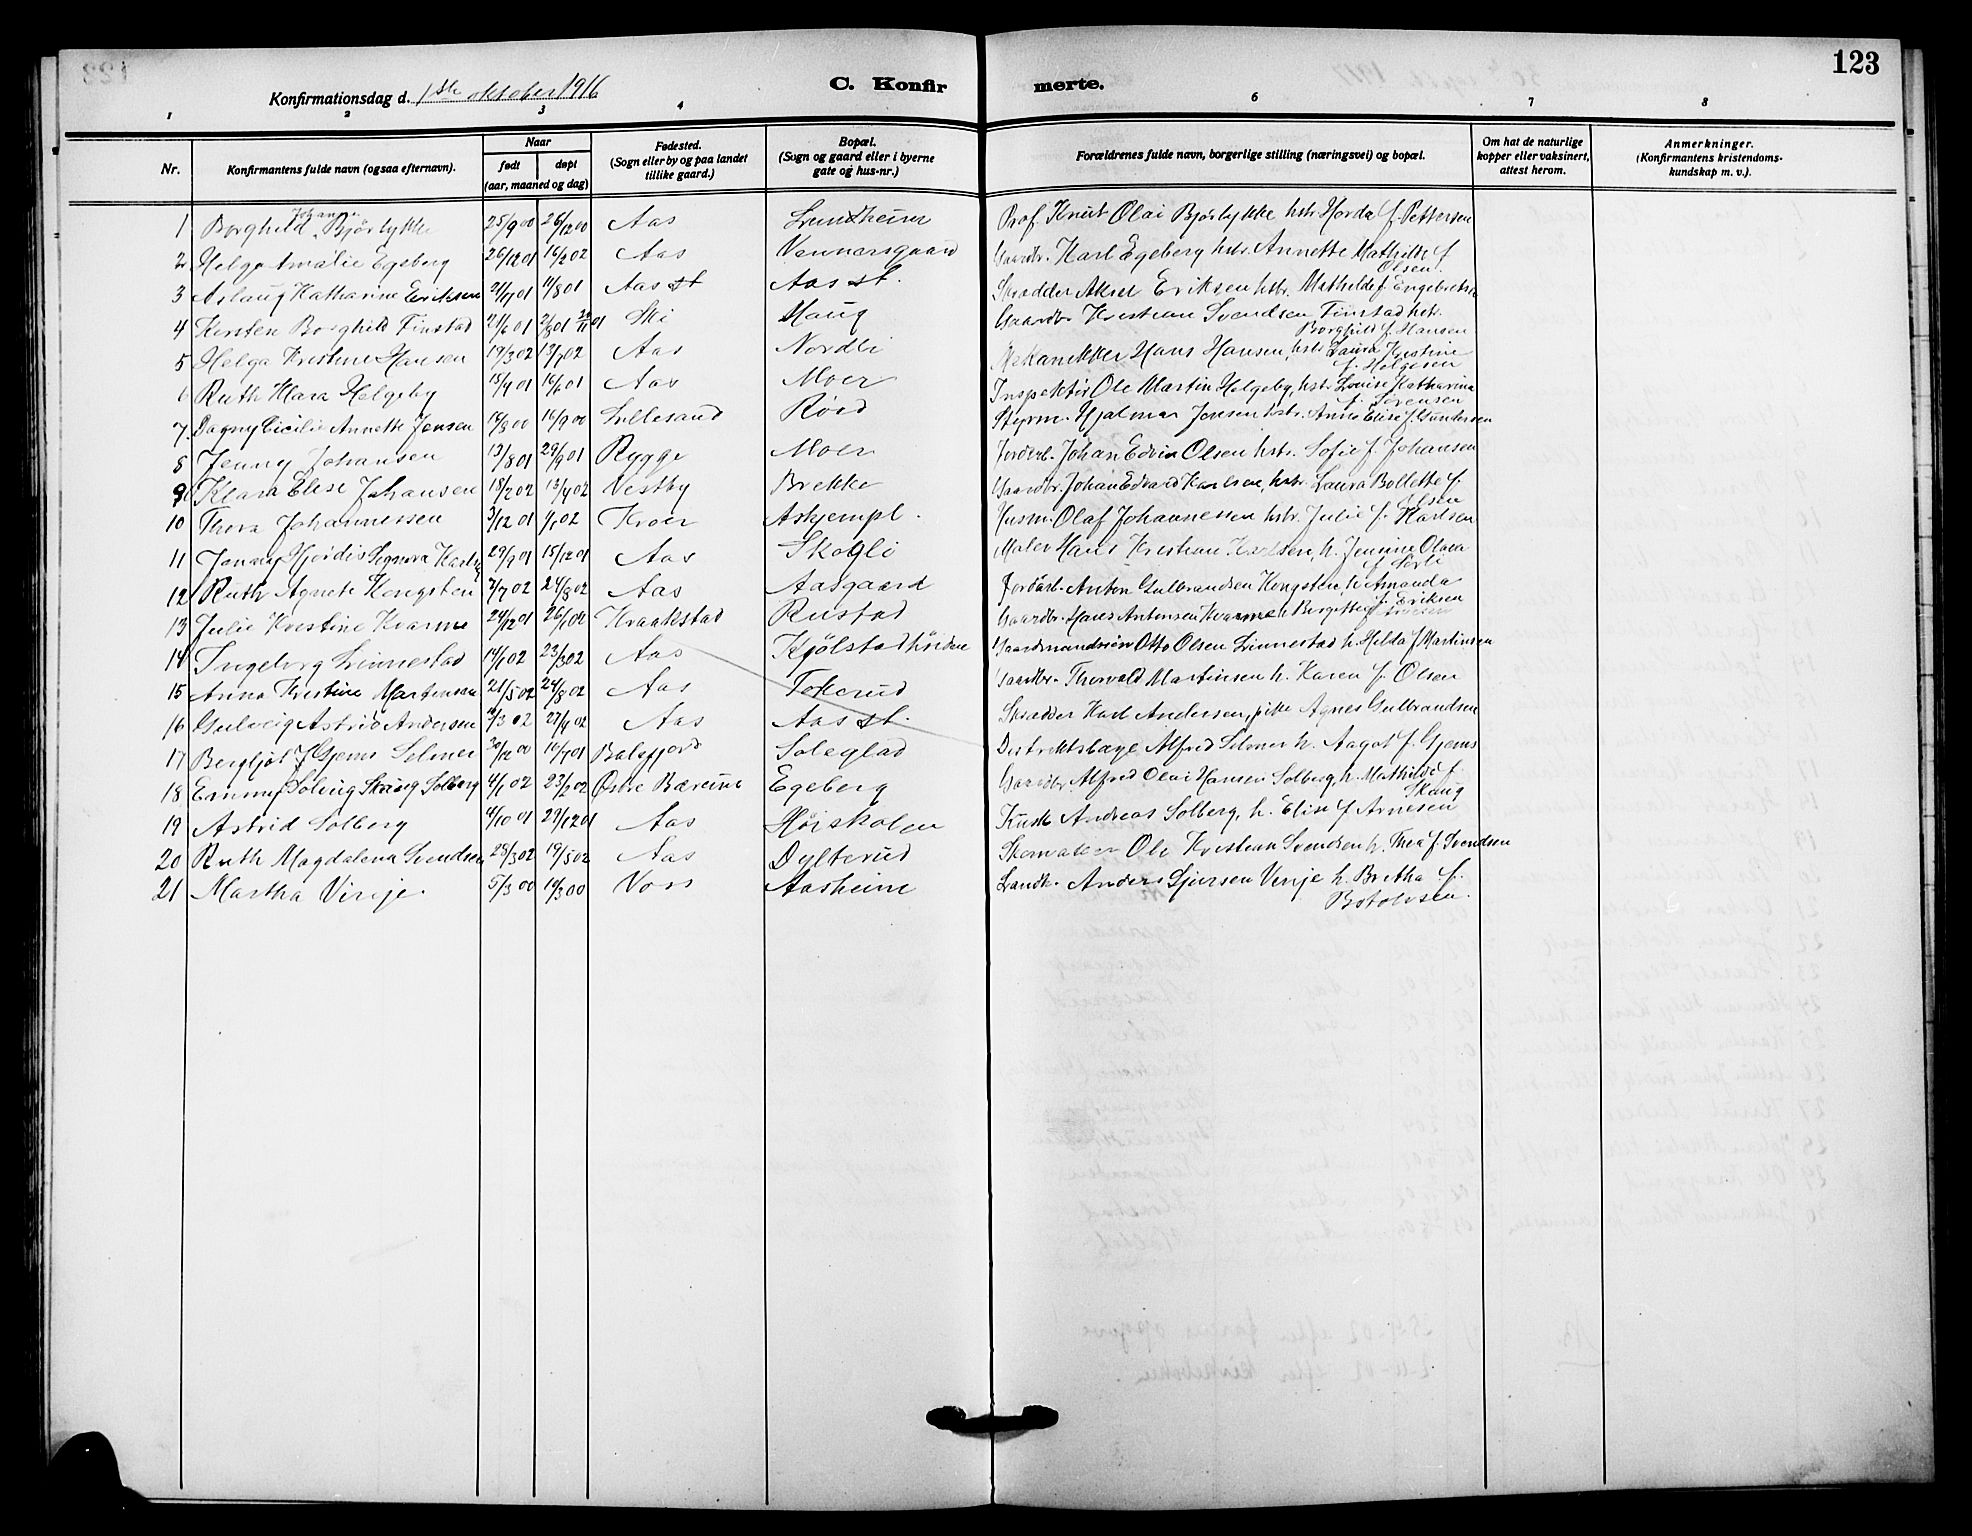 123
Konfirmationsdag d. 1ste oktober 1916
C. Konfirmerte.
1 2 3 4 6 7 8
Nr.
Konfirmantens fulde navn (ogsaa efternavn).
Naar
født
døpt
(aar, maaned og dag)
Fødested.
(Sogn eller by og paa landet
tillike gaard.)
Bopæl.
(Sogn og gaard eller i byerne
gate og hus-nr.)
Forældrenes fulde navn, borgerlige stilling (næringsvei) og bopæl.
Om hat de naturlige
kopper eller vaksinert,
attest herom.
Anmerkninger.
(Konfirmantens kristendoms-
kundskap m. v.).
1 Borghild Johanne Bjørlykke 25/9 00 26/12 00 Aas Lundheim Prof. Knut Olai Bjørlykke hstr. Horda f. Pettersen
2 Helga Amalie Egeberg 26/12 01 16/2 02 Aas Vennersgaard Gaardbr. Karl Egeberg hstr. Annette Mathilde f.
Olsen.
3 Aslaug Katharine Eriksen 21/7 01 11/8 01 Aas st Aas st. Skrædder Aksel Eriksen hstr. Mathilde f Engebretsen
4 Kirsten Borghild Finstad 21/6 01 2/8 01 Ski Haug Gaardbr Kristian Svendsen Finstad hstr.
Borghild f. Hansen
5 Helga Kristine Hansen 19/3 02 13/7 02 Aas Nordli Mekanikker Hans Hansen, hstr Laura Kristine
f. Helgesen
6 Ruth Klara Helgeby 15/4 01 16/6 01 Aas Moer Inspektør Ole Martin Helgeby, hst. Louise Katharina
f. Sørensen
7 Dagny Cicilie Annette Jensen 14/8 00 16/9 00 Lillesand Røed Styrm. Hjalmar Jensen hstr. Anne Elise f. Gundersen
8 Jenny Johansen 13/8 01 29/9 01 Rygge Moer Jorderb. Johan Edvin Olsen hstr. Sofie f. Johansen
9 Klara Elise Johansen 18/2 02 13/4 02 Vestby Brekke Gaardbr. Johan Edvard Karlsen, hstr. Laura Bollette f.
Olsen
10 Thora Johannessen 3/12 01 4/1 02 Kroer Askjempl. Husm. Olaf Johannessen hstr. Julie f. Karlsen
11 Jenny Hjørdis Signora Karlsen 29/9 01 15/12 01 Aas Skogli Maler Hans Kristian Karlsen, h. Jensine Olava
f. Sørli
12 Ruth Agnete Kongsten 7/7 02 24/8 02 Aas Aasgaard Jordarb. Anton Gulbrandsen Kongsten, h. Amanda
f. Eriksen
13 Julie Kristine Kvarme 24/12 01 26/1 02 Kraakstad Rustad Gaardbr. Hans Antonsen Kvarme h Bergitte f
14 Ingeborg Linnestad 14/1 02 23/3 02 Aas Kjølstadhøiden Gaardmandssøn Otto Olsen Linnestad h. Hilda f Martinsen
15 Anna Kristine Martinsen 21/5 02 24/8 02 Aas Tokerud Gaardbr. Thorvald Martinsen h. Karen f. Olsen
16 Gulveig Astrid Andersen /3 02 27/4 02 Aas Aas st. Skrædder Karl Andersen, pike Agnes Gulbrandsen
17 Bergljot Gjems Selmer 30/12 00 16/7 01 Balsfjord Soleglad Distriktslæge Alfred Selmer h. Aagot f. Gjems
18 Emmy Solveig Skaug Solberg 4/1 02 23/2 02 Østre Bærum Egeberg Gaardbr. Alfred Olai Hansen Solberg, h. Mathilde f.
Skaug
19 Astrid Solberg 4/10 01 29/12 01 Aas Høiskolen Kusk Andreas Solberg, h. Elise f Arnesen
20 Ruth Magdalena Svendsen 25/3 02 19/5 02 Aas Dylterud Skomaker Ole Kristian Svendsen h. Thea f. Svendsen
21 Martha Vinje. 5/3 00 19/3 00 Voss Aasheim Landh. Anders Sjursen Vinje h. Bretha f.
Botolvsen.